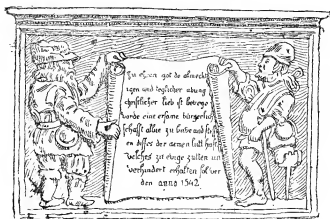 Zu eren got de almecht
igen und teglicher abung
christlicher lieb ist bewege
worde eine ersame bürgerlich
schafft albie zu
en disses der armen
welches zu evige zulten un
verhindert erhalten sol ver
den anno 1542.